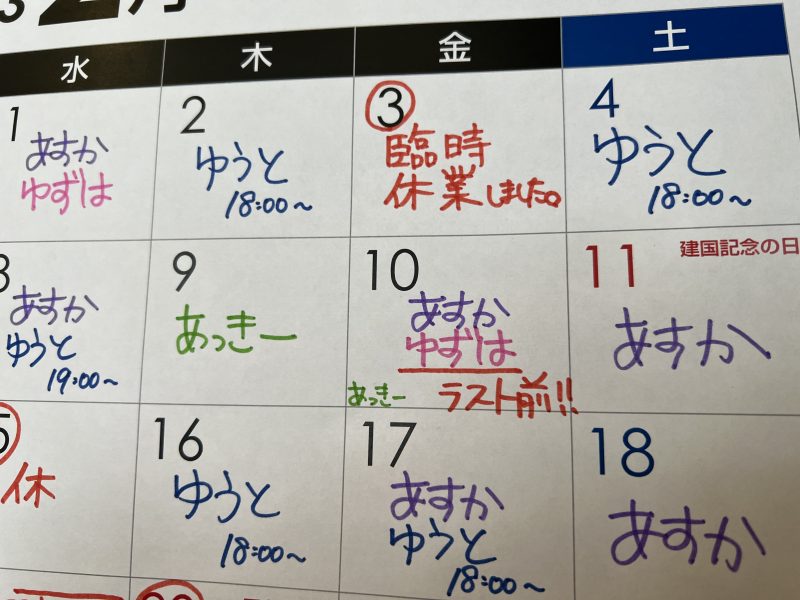 水 木 金 土
1 2 3 4
あすか
ゆずは
ゆうと
18:00~
臨時
休業しました。
ゆうと
18:00~
8 9 10 11
建国記念の日
あすか
ゆうと
19:00~
あっきー
あすか
ゆずは
あっきー ラスト前!!
あすか
15 16 17 18
休
ゆうと
18:00~
あすか
ゆうと
18:00~
あすか